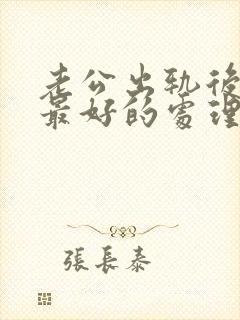 老公出轨後
最好的處理
張長泰